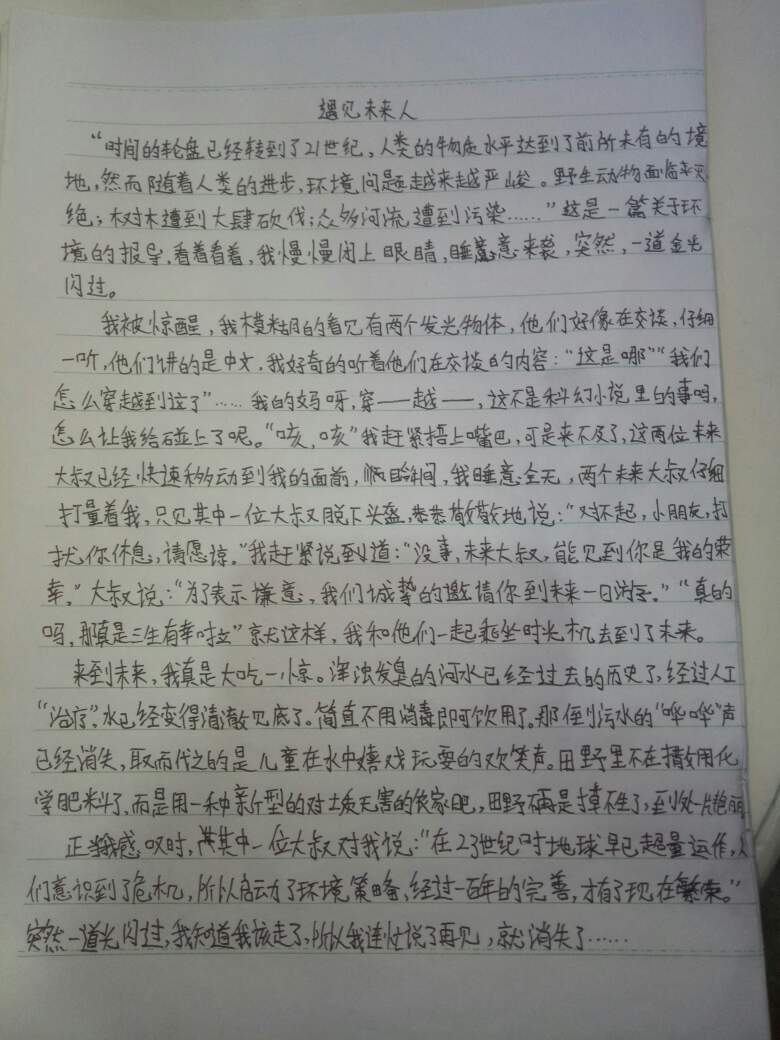 遇见未来人
“时间的轮盘已经转到了21世纪,人类的物质水平达到了前所未有的境
地,然而随着人类的进步,环境问题越来越严峻。野生动物面临来灭
绝;树木遭到大肆砍伐;众多河流遭到污染……”这是一篇关于环
境的报导,看着看着,我慢慢闭上眼睛,睡意来袭,突然,一道金光
闪过。
我被惊醒,我模糊的看见有两个发光物体,他们好像在交谈,仔细
一听,他们讲的是中文,我好奇的听着他们在交谈的内容:“这是哪”“我们
怎么穿越到这了”……我的妈呀,穿——越——,这不是科幻小说里的事吗,
怎么让我给碰上了呢。“咳,咳”我赶紧捂上嘴巴,可是来不及了,这两位未来
大叔已经快速移动到我的面前,顺时间,我睡意全无,两个未来大叔仔细
打量着我,只见其中一位大叔脱下头盔,恭恭敬敬地说:“对不起,小朋友,打
扰你休息,请愿谅。”我赶紧说到道:“没事,未来大叔,能见到你是我的荣
幸。”大叔说:“为了表示嫌意,我们诚挚的邀请你到未来一日游。”“真的
吗,那真是三生有幸哇”就这样,我和他们一起乘坐时光机去到了未来。
来到未来,我真是大吃一惊。浑浊发臭的河水已经过去的历史了,经过人工
“治疗”,水已经变得清澈见底了。简直不用消毒即可饮用了。那倒污水的“哗哗”声
已经消失,取而代之的是儿童在水中嬉戏玩耍的欢笑声。田野里不在播放用化
学肥料了,而是用一种新型的对土质无害的农家肥,田野不再是寸草不生了,到处一片艳丽
正当我感叹时,其中一位大叔对我说:“在23世纪时地球早已超量运作,人
们意识到了危机,所以启动了环境策略,经过一百年的完善,才有了现在繁荣。”
突然一道光闪过,我知道我该走了,所以我连忙说了再见,就消失了……